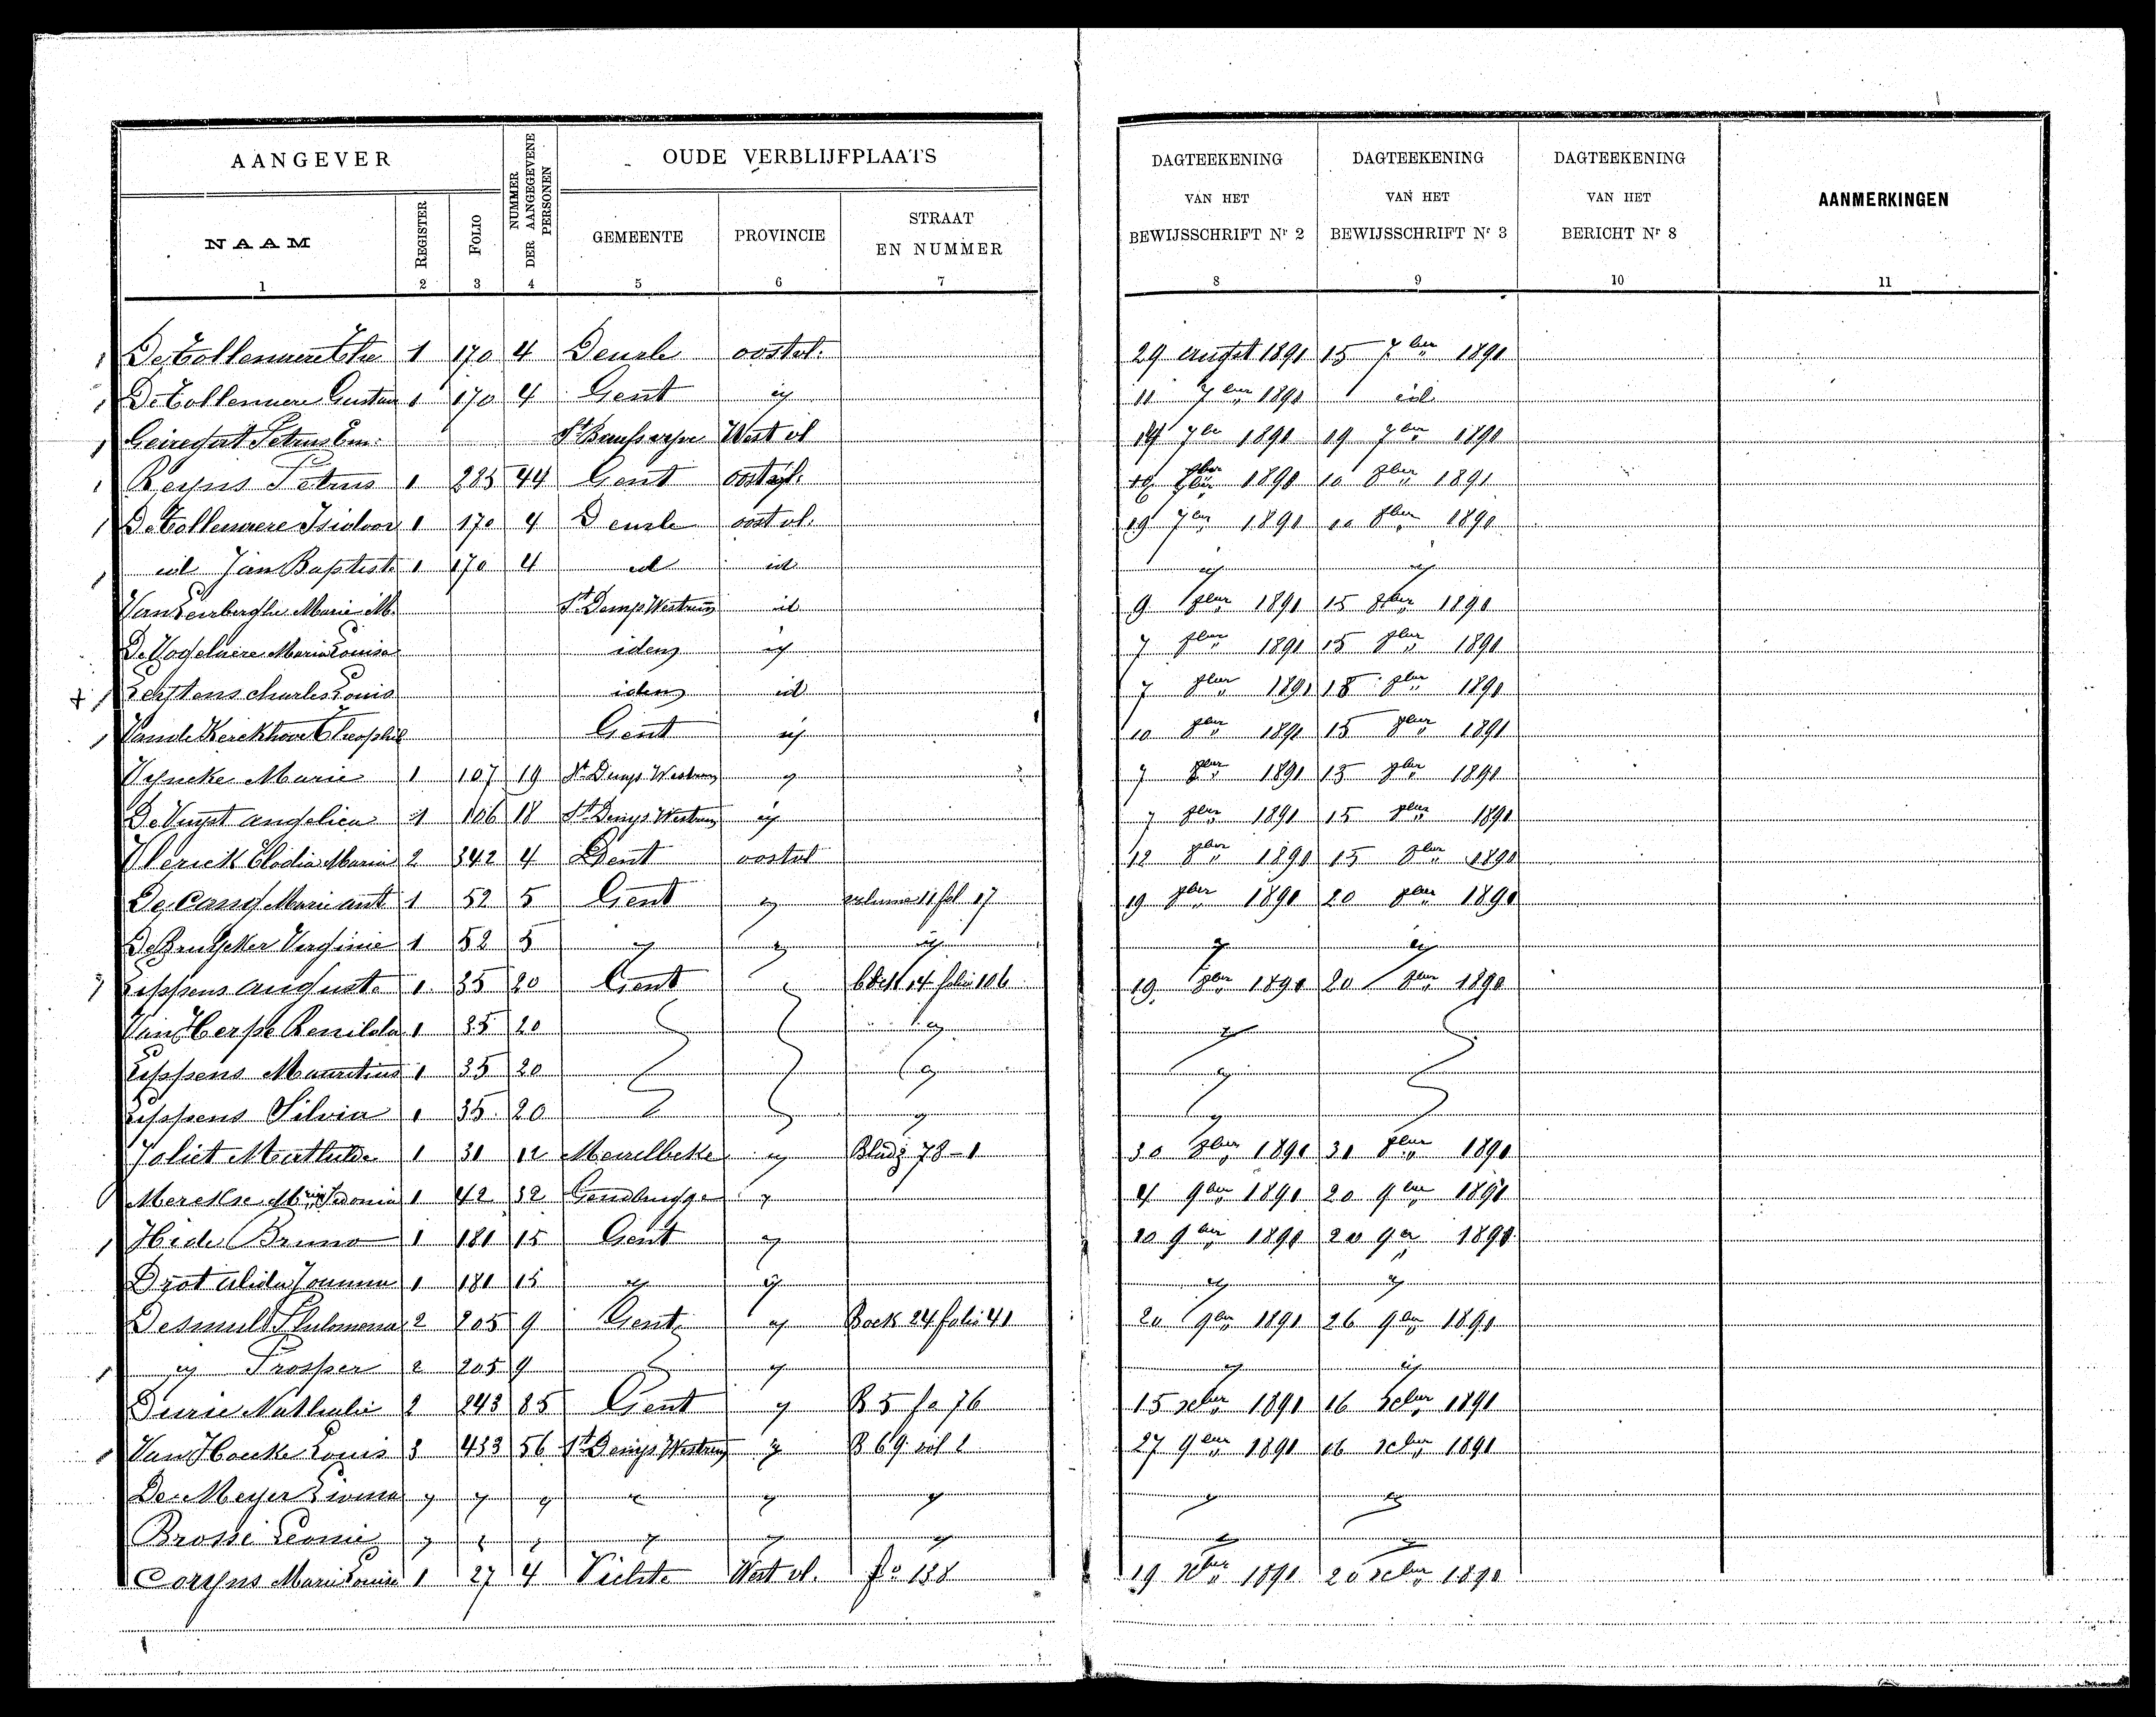 AANGEVER NUMMER DER AANGEGEVENE PERSONEN OUDE VERBLIJFPLAATS DAGTEEKENING VAN HET BEWIJSSCHRIFT Nr 2 DAGTEEKENING VAN HET BEWIJSSCHRIFT Nr 3 DAGTEEKENING VAN HET BERICHT Nr 8 AANMERKINGEN
NAAM REGISTER FOLIO GEMEENTE PROVINCIE STRAAT EN NUMMER
1 2 3 4 5 6 7 8 9 10 11
De Tollenaere 1 170 4 Deurle oostvl. 29 1890 15 7ber 1890
De Tollenaere Gustav 1 170 4 Gent id 11 7ber 1890 id
Petrus Em. West vl 14 7ber 1890 19 7ber 1890
Reyns Petrus 1 285 44 Gent oostvl. 1890 10 8ber 1891
De Tollenaere Isidoor 1 170 4 Deurle oostvl. 19 7ber 1890 10 8ber 1890
id Jan Baptiste 1 170 4 id id id id
Van Marie M. St Denys Westrem id 9 8ber 1890 15 8ber 1890
De Vogelaere Maria Louisa idem id 7 8ber 1890 15 8ber 1890
Charles Louis idem id 7 8ber 1890 15 8ber 1890
Van de Kerckhove Theophile Gent id 10 8ber 1890 15 8ber 1890
Vyncke Marie 1 107 19 St Denys Westrem id 7 8ber 1890 15 8ber 1890
De Vuyst angelica 1 106 18 St Denys Westrem id 7 8ber 1890 15 8ber 1890
Vlerick Elodia Maria 2 342 4 Gent oostvl 12 8ber 1890 15 8ber 1890
Marie ant 1 52 5 Gent id volume 11 fol 17 19 8ber 1890 20 8ber 1890
De Bruycker Virginie 1 52 5 id id id id id
Lippens auguste 1 35 20 Gent boek 14 folio 106 19 8ber 1890 20 8ber 1890
Van Herpe Renilda 1 35 20 id id
Lippens Mauritius 1 35 20 id id
Lippens Silvia 1 35 20 id id
Joliet Mathilde 1 31 12 Meirelbeke id Bladz 78-1 30 8ber 1890 31 8ber 1890
Merckse Sidonia 1 42 32 Gendbrugge id 4 9ber 1890 20 9ber 1890
Hide Bruno 1 181 15 Gent id 20 9ber 1890 20 9er 1890
alida Joanna 1 181 15 id id id id
Desmul Philomena 2 205 9 Gent id Boek 24 folio 41 20 9ber 1890 26 9ber 1890
id Prosper 2 205 9 id id id
Durie Nathalie 2 243 85 Gent id B 5 fo 76 15 xber 1890 16 xber 1890
Van Hoecke Louis 3 433 56 St Denys Westrem id B 69 vol 2 27 9ber 1890 16 xber 1890
De Meyer id id id id id id id id
Leonie id id id id id id id id
Coryns Marie Louise 1 27 4 Vichte West vl. fo 138 19 xber 1890 20 xber 1890